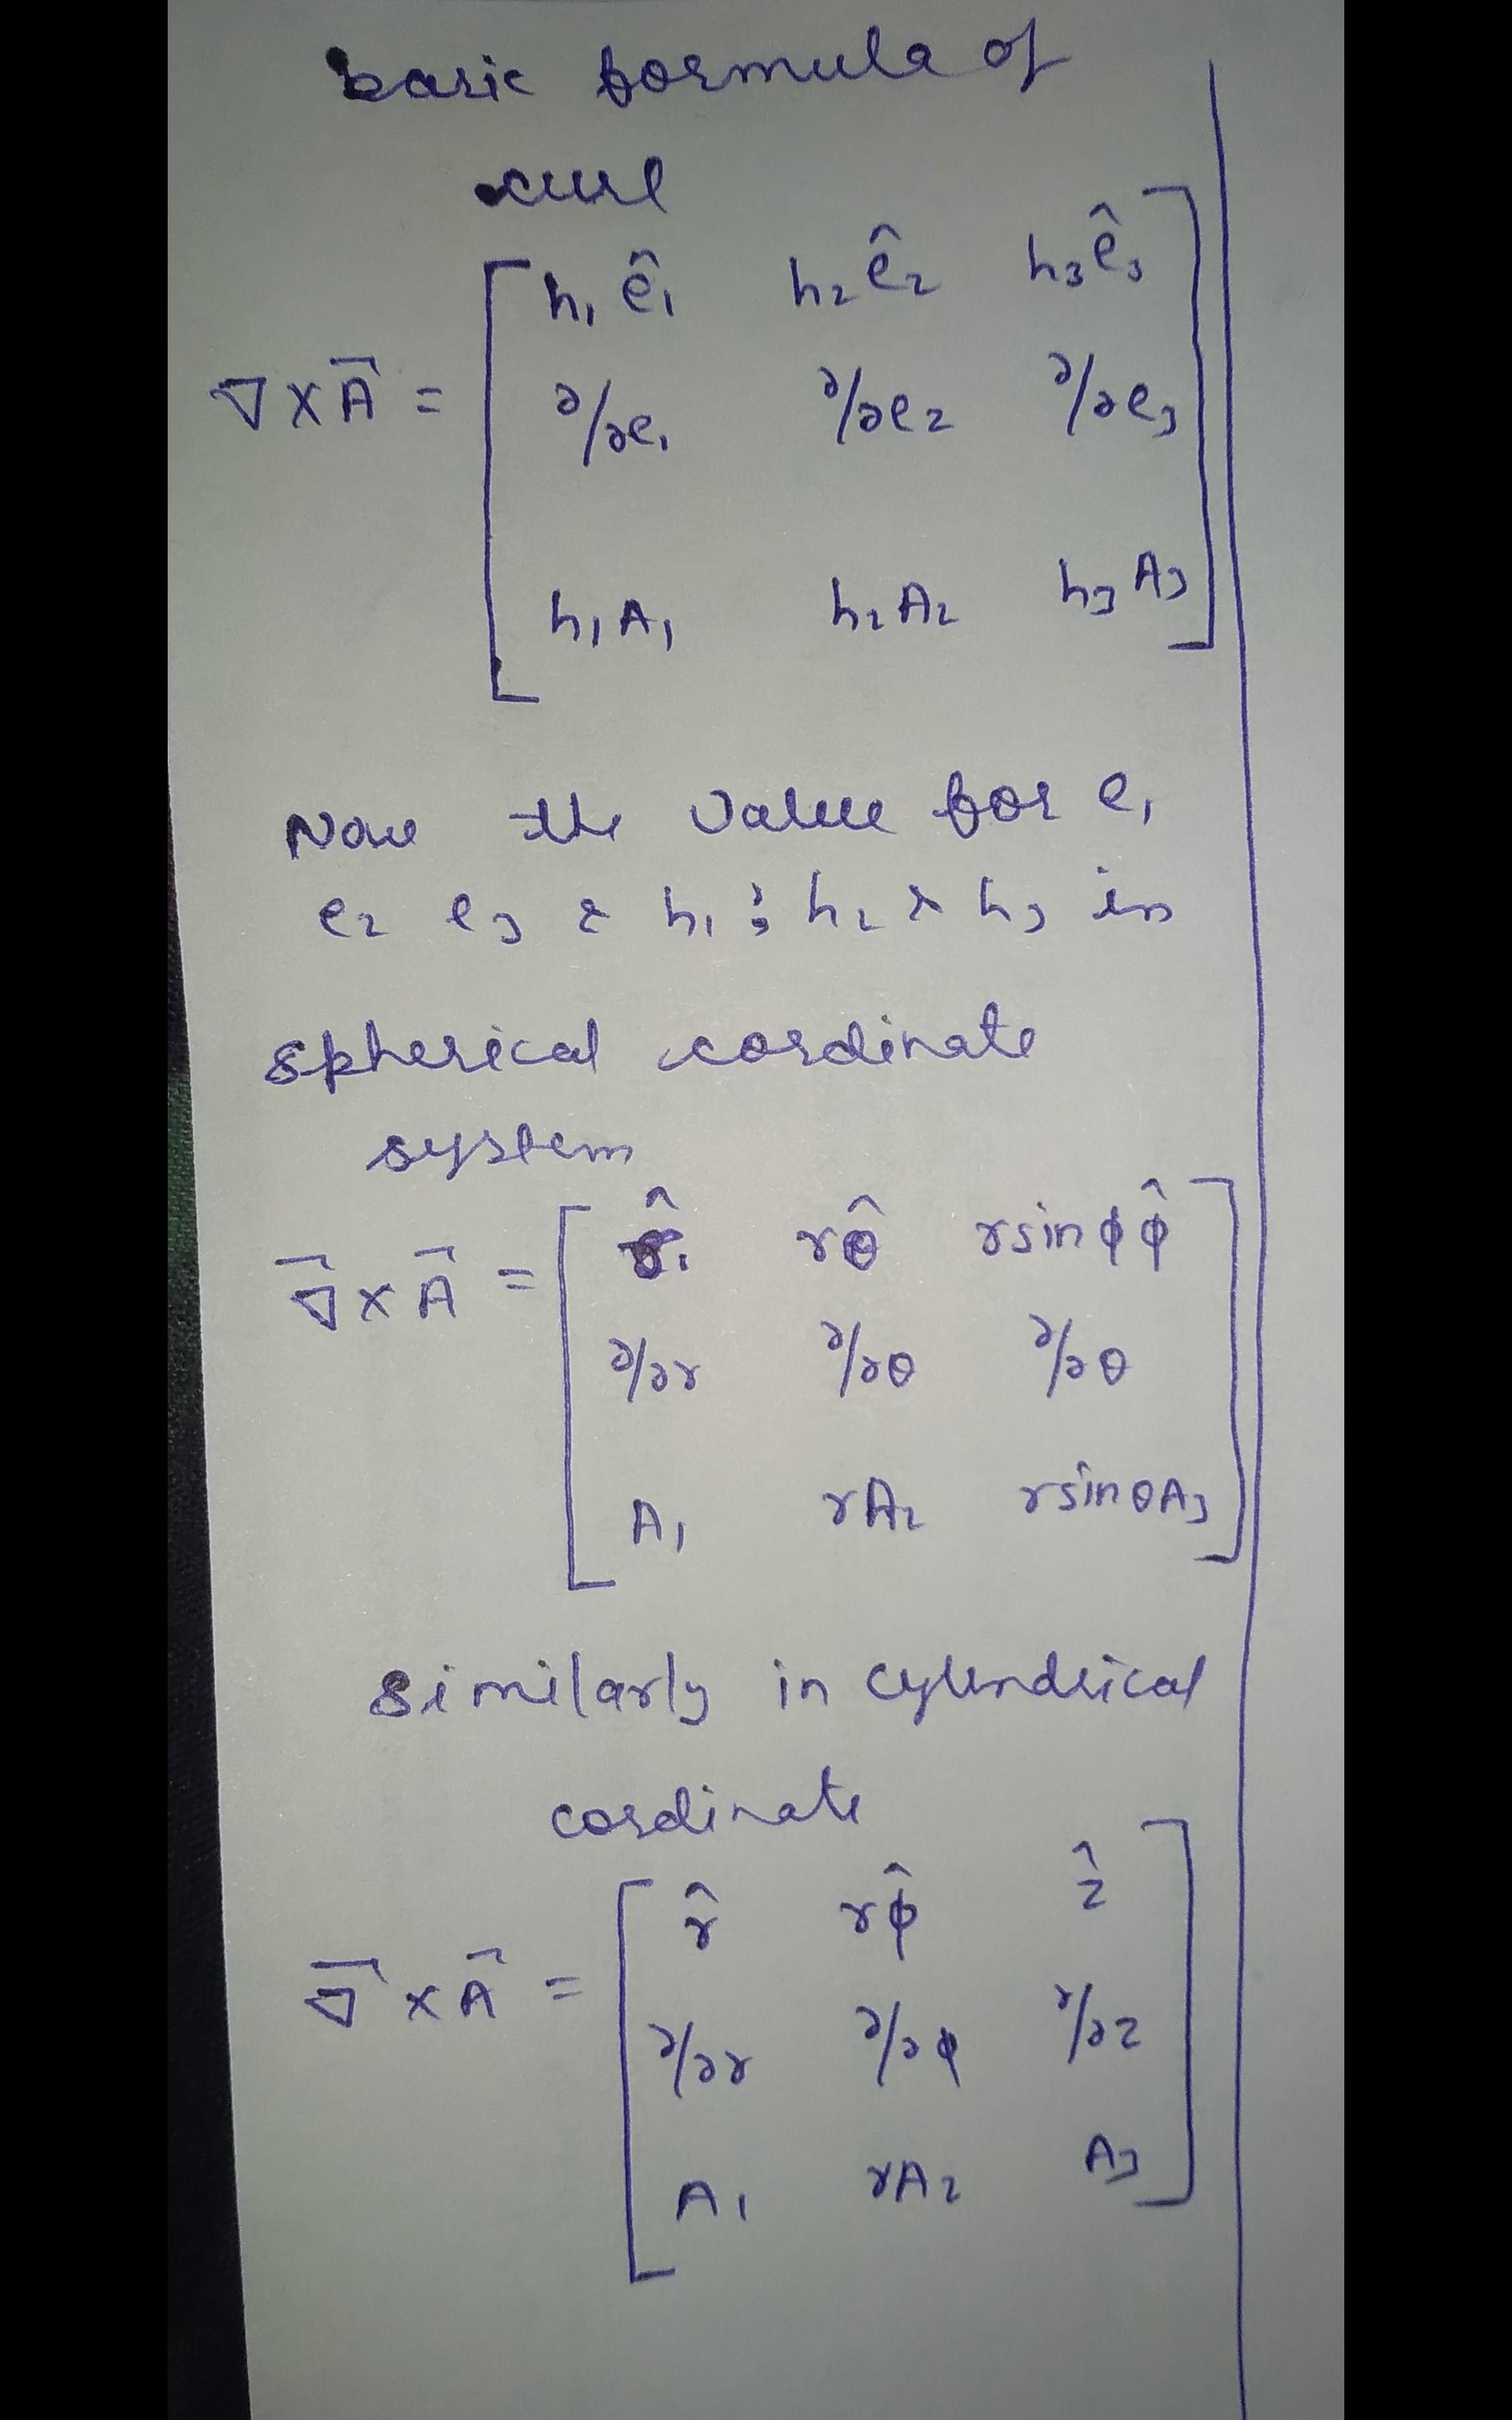 basic formula of
curl
h₁ê₁ h₂ê₂ h₃ê₃
∇×A⃗ = ∂/∂e₁ ∂/∂e₂ ∂/∂e₃
h₁A₁ h₂A₂ h₃A₃
Now the value for e₁
e₂ e₃ & h₁ ; h₂ & h₃ in
spherical cordinate
system
r̂ rθ̂ rsinϕϕ̂
∇⃗×A⃗ = ∂/∂r ∂/∂θ ∂/∂θ
A₁ rA₂ rsinθA₃
similarly in cylindrical
cordinate
r̂ rϕ̂ ẑ
∇⃗×A⃗ = ∂/∂r ∂/∂ϕ ∂/∂z
A₁ rA₂ A₃